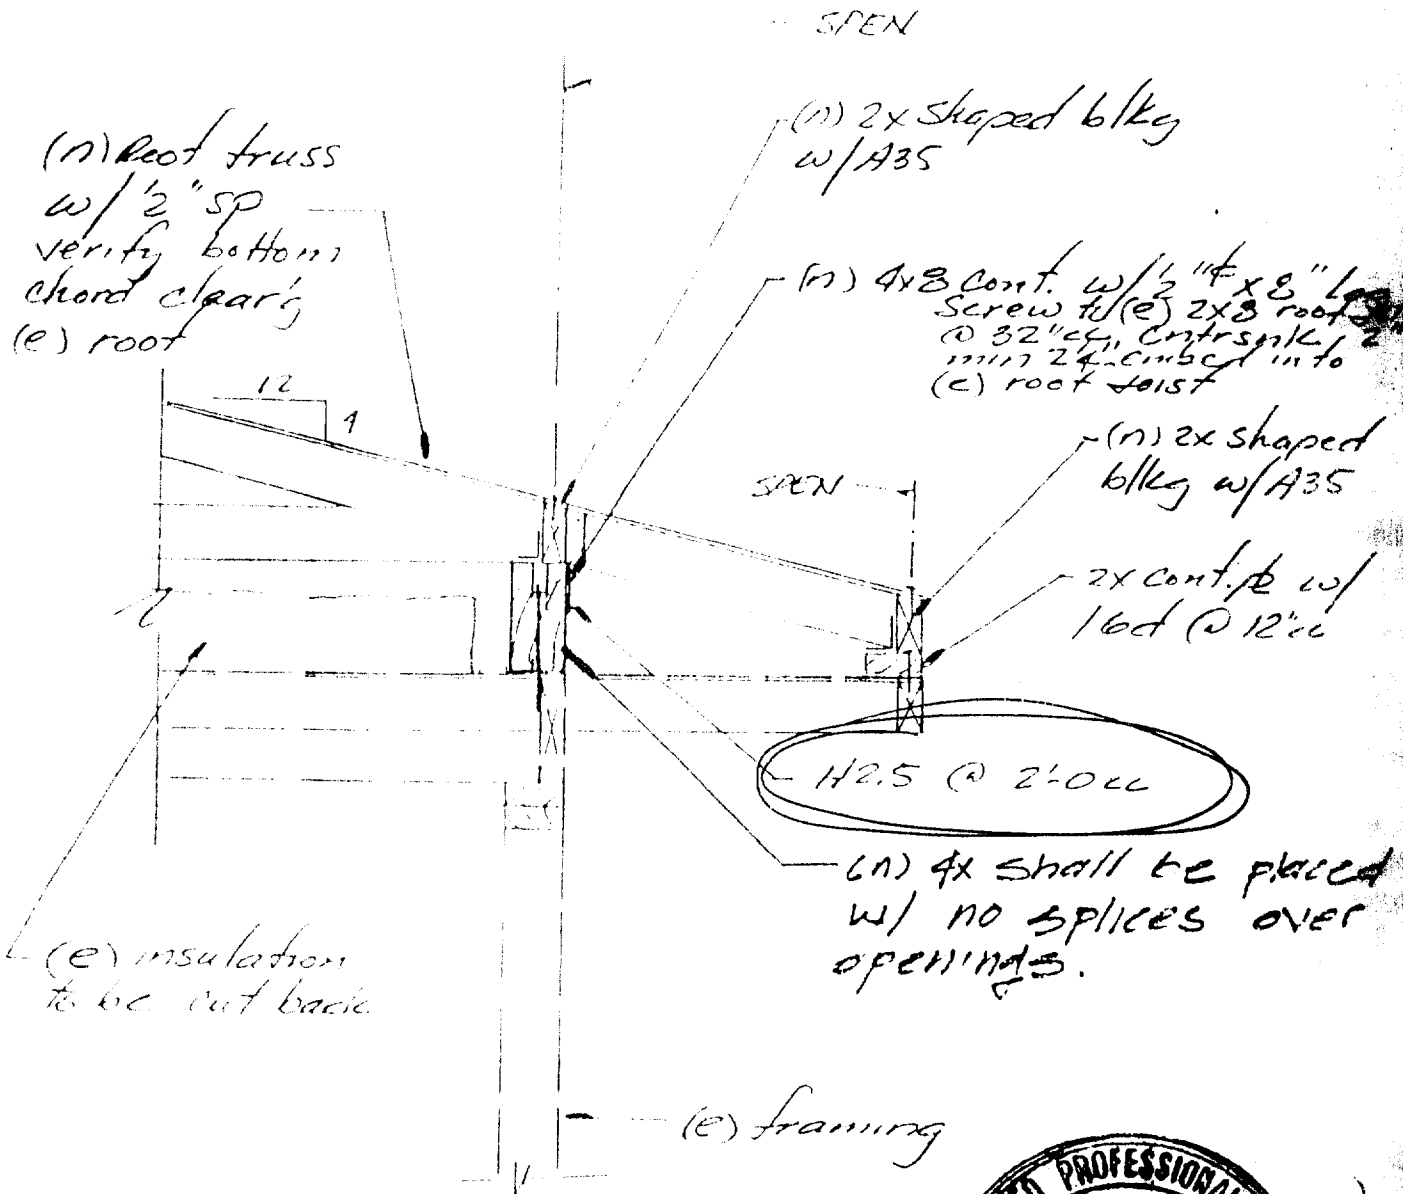 SPEN
(n) Roof truss
w/ 1/2" SP
verify bottom
chord clear'g
(e) roof
(n) 2x shaped blkg
w/A35
(n) 4x8 cont. w/ 1/2"¢ x 8" Lag
Screw to (e) 2x8 roof
@ 32"cc, Cntrsnk
min embed into
(e) roof joist
12
4
SPEN
(n) 2x shaped
blkg w/A35
2x cont. w/
16d @ 12"cc
H2.5 @ 2'-0 cc
(n) 4x shall be placed
w/ no splices over
openings.
(e) insulation
to be cut back
(e) framing
PROFESSIONAL